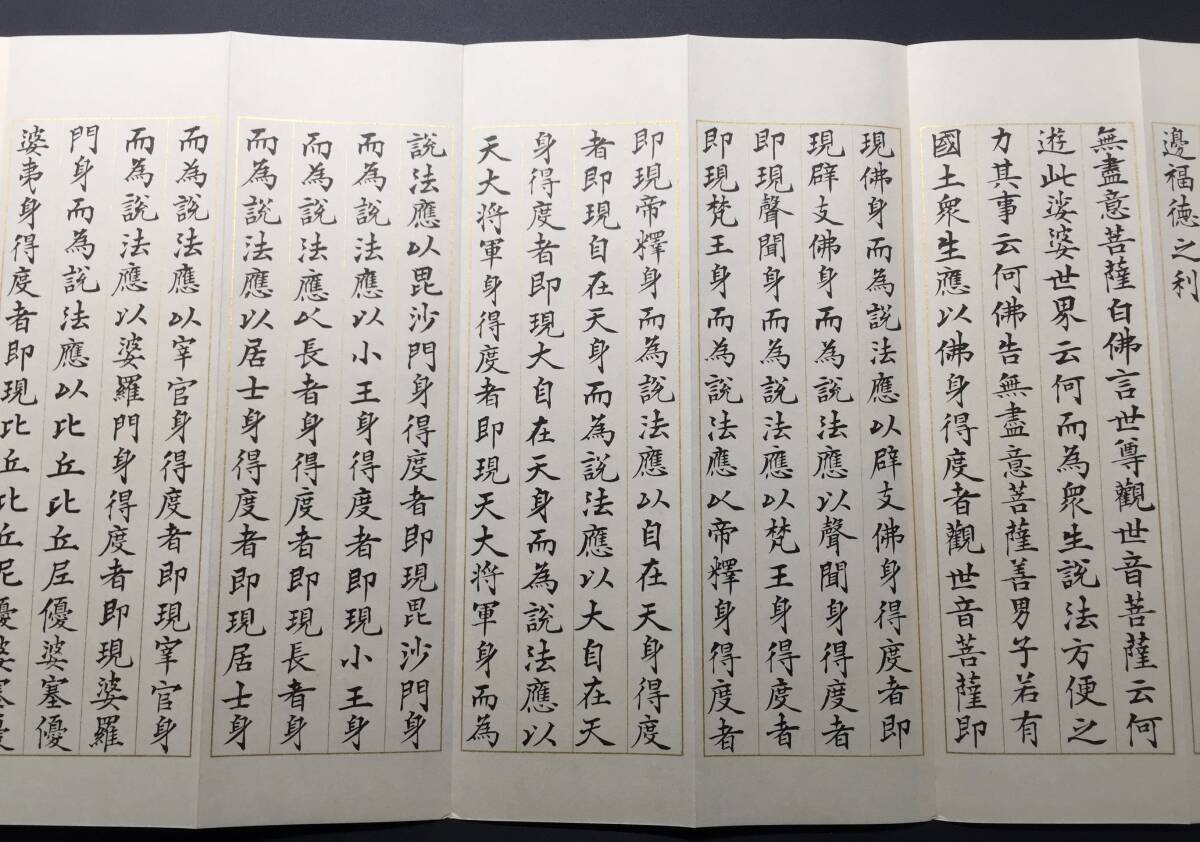 邊福徳之利
無盡意菩薩白佛言世尊觀世音菩薩云何
遊此娑婆世界云何而為衆生說法方便之
力其事云何佛告無盡意菩薩善男子若有
國土衆生應以佛身得度者觀世音菩薩即
現佛身而為說法應以辟支佛身得度者即
現辟支佛身而為說法應以聲聞身得度者
即現聲聞身而為說法應以梵王身得度者
即現梵王身而為說法應以帝釋身得度者
即現帝釋身而為說法應以自在天身得度
者即現自在天身而為說法應以大自在天
身得度者即現大自在天身而為說法應以
天大将軍身得度者即現天大将軍身而為
說法應以毘沙門身得度者即現毘沙門身
而為說法應以小王身得度者即現小王身
而為說法應以長者身得度者即現長者身
而為說法應以居士身得度者即現居士身
而為說法應以宰官身得度者即現宰官身
而為說法應以婆羅門身得度者即現婆羅
門身而為說法應以比丘比丘尼優婆塞優
婆夷身得度者即現比丘比丘尼優婆塞優